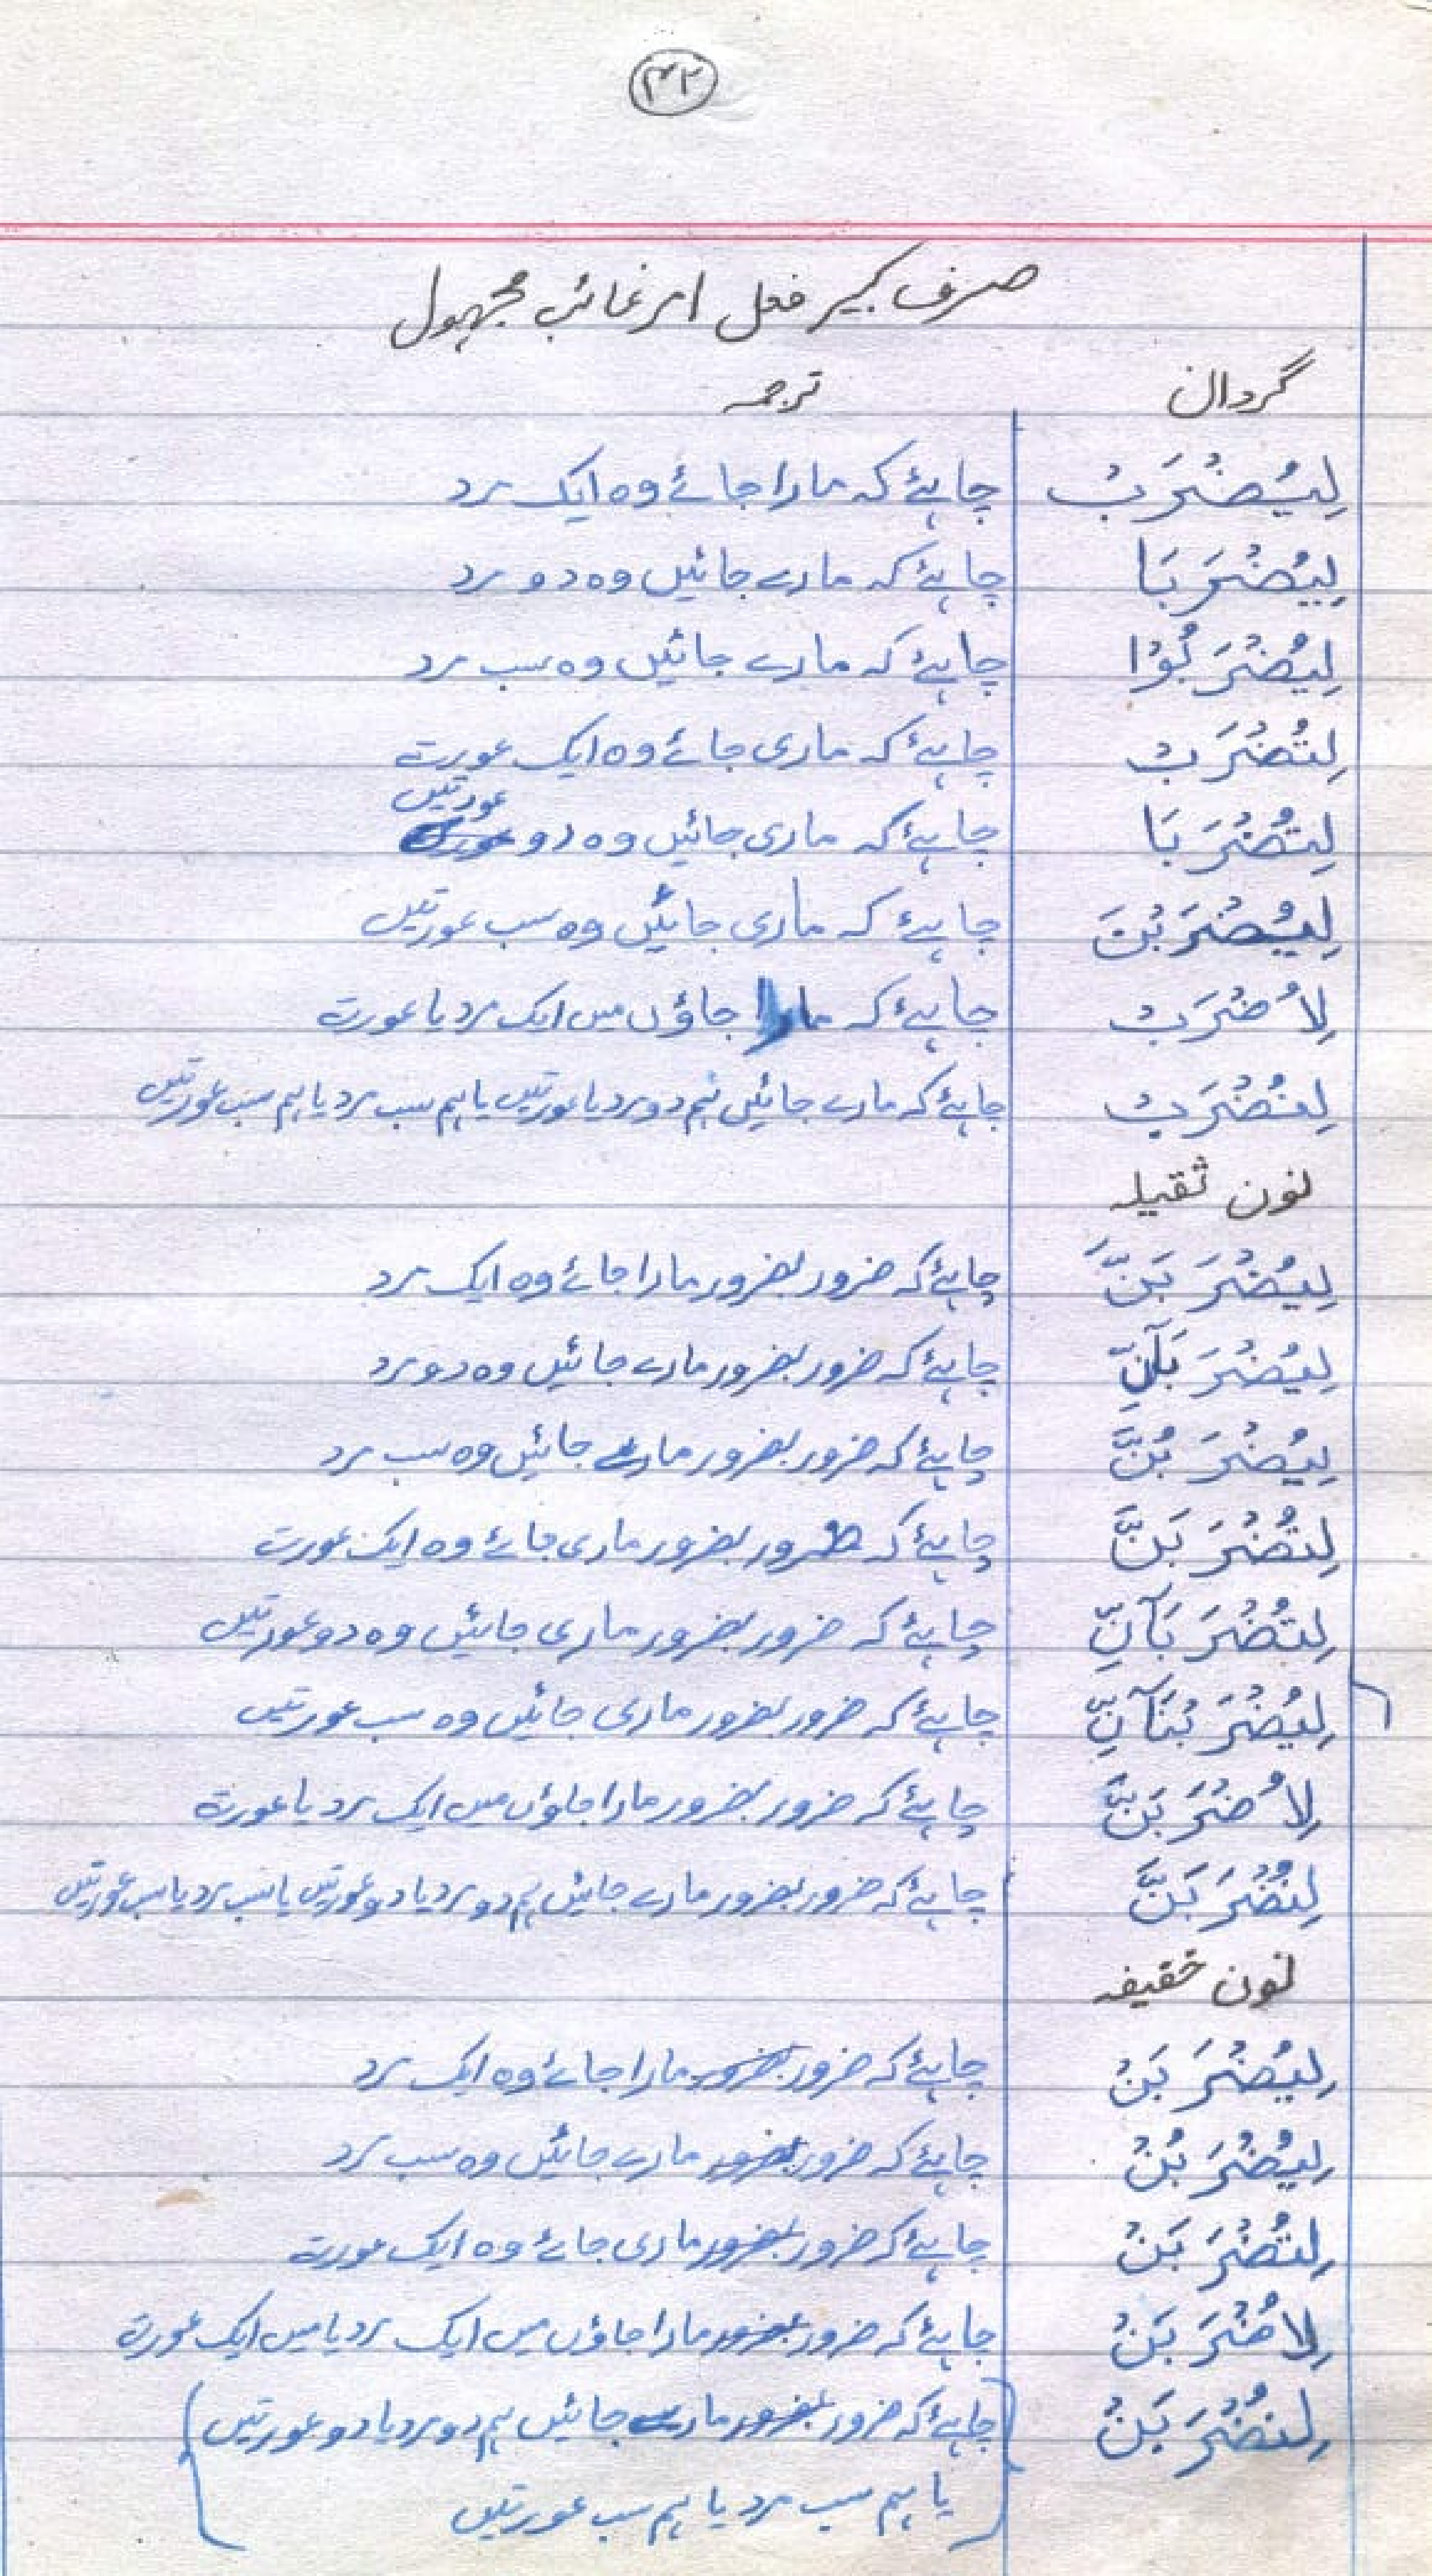 ۴۲
صرف کبیر فعل امر غائب مجہول
گردان ترجمہ
لِيُضْرَبْ چاہیئے کہ مارا جائے وہ ایک مرد
لِيُضْرَبَا چاہیئے کہ مارے جائیں وہ دو مرد
لِيُضْرَبُوْا چاہیئے کہ مارے جائیں وہ سب مرد
لِتُضْرَبْ چاہیئے کہ ماری جائے وہ ایک عورت
لِتُضْرَبَا چاہیئے کہ ماری جائیں وہ دو عورتیں
لِيُضْرَبْنَ چاہیئے کہ ماری جائیں وہ سب عورتیں
لِاُضْرَبْ چاہیئے کہ مارا جاؤں میں ایک مرد یا عورت
لِنُضْرَبْ چاہیئے کہ مارے جائیں ہم دو مرد یا عورتیں یا ہم سب مرد یا ہم سب عورتیں
نون ثقیلہ
لِيُضْرَبَنَّ چاہیئے کہ ضرور بضرور مارا جائے وہ ایک مرد
لِيُضْرَبَآنِّ چاہیئے کہ ضرور بضرور مارے جائیں وہ دو مرد
لِيُضْرَبُنَّ چاہیئے کہ ضرور بضرور مارے جائیں وہ سب مرد
لِتُضْرَبَنَّ چاہیئے کہ ضرور بضرور ماری جائے وہ ایک عورت
لِتُضْرَبَآنِّ چاہیئے کہ ضرور بضرور ماری جائیں وہ دو عورتیں
لِيُضْرَبْنَآنِّ چاہیئے کہ ضرور بضرور ماری جائیں وہ سب عورتیں
لِاُضْرَبَنَّ چاہیئے کہ ضرور بضرور مارا جاؤں میں ایک مرد یا عورت
لِنُضْرَبَنَّ چاہیئے کہ ضرور بضرور مارے جائیں ہم دو مرد یا دو عورتیں یا سب مرد یا سب عورتیں
نون خفیفہ
لِيُضْرَبَنْ چاہیئے کہ ضرور بضرور مارا جائے وہ ایک مرد
لِيُضْرَبُنْ چاہیئے کہ ضرور بضرور مارے جائیں وہ سب مرد
لِتُضْرَبَنْ چاہیئے کہ ضرور بضرور ماری جائے وہ ایک عورت
لِاُضْرَبَنْ چاہیئے کہ ضرور بضرور مارا جاؤں میں ایک مرد یا میں ایک عورت
لِنُضْرَبَنْ (چاہیئے کہ ضرور بضرور مارے جائیں ہم دو مرد یا دو عورتیں
یا ہم سب مرد یا ہم سب عورتیں)